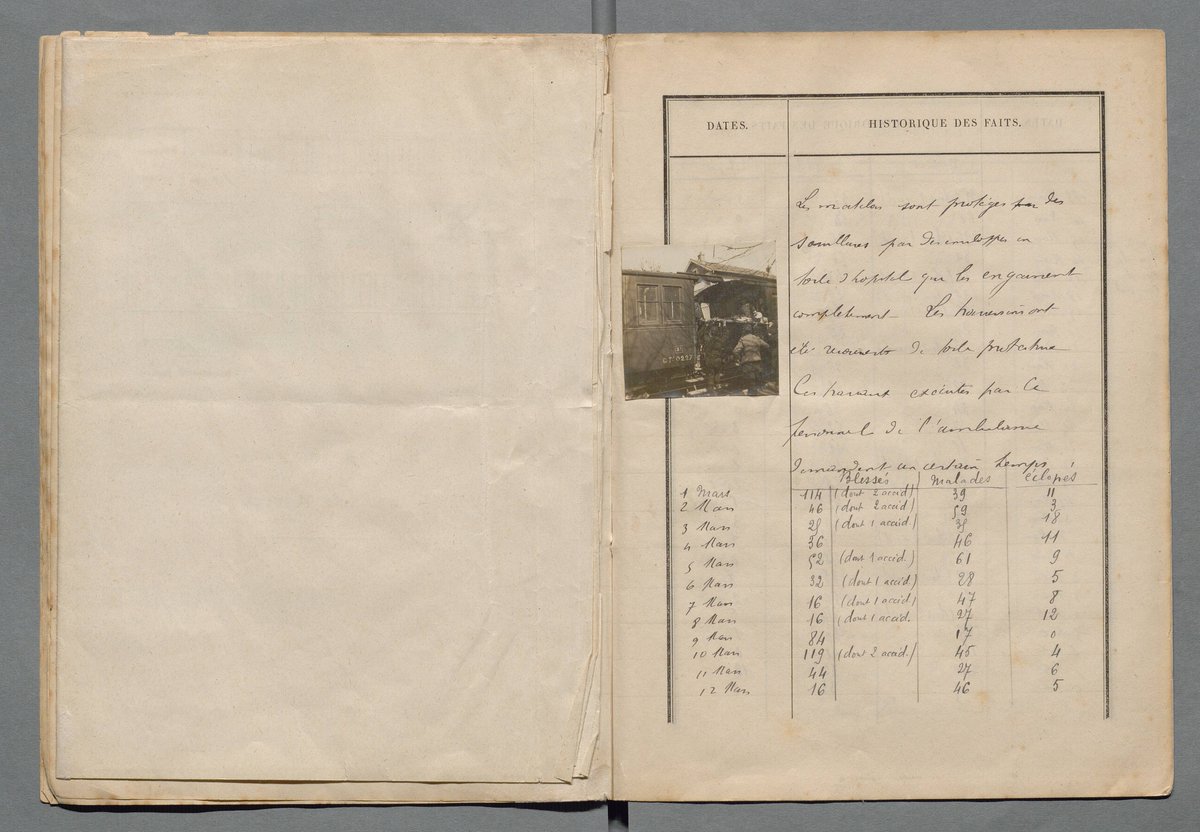 DATES.
HISTORIQUE DES FAITS.
Les matelas sont protégés par des
souillures par des enveloppes en
toile d'hopital qui les engainent
completement. Les traversins ont
été recouverts de toile protectrice
Ces travaux exécutés par le
personnel de l'ambulance
demandent un certain temps
Blessés Malades éclopés
1 Mars 114 (dont 2 accid) 39 11
2 Mars 46 (dont 2 accid) 59 3
3 Mars 25 (dont 1 accid) 35 18
4 Mars 36 46 11
5 Mars 52 (dont 1 accid.) 61 9
6 Mars 32 (dont 1 accid) 28 5
7 Mars 16 (dont 1 accid) 47 8
8 Mars 16 (dont 1 accid. 27 12
9 Mars 84 17 0
10 Mars 119 (dont 2 accid.) 45 4
11 Mars 44 27 6
12 Mars 16 46 5